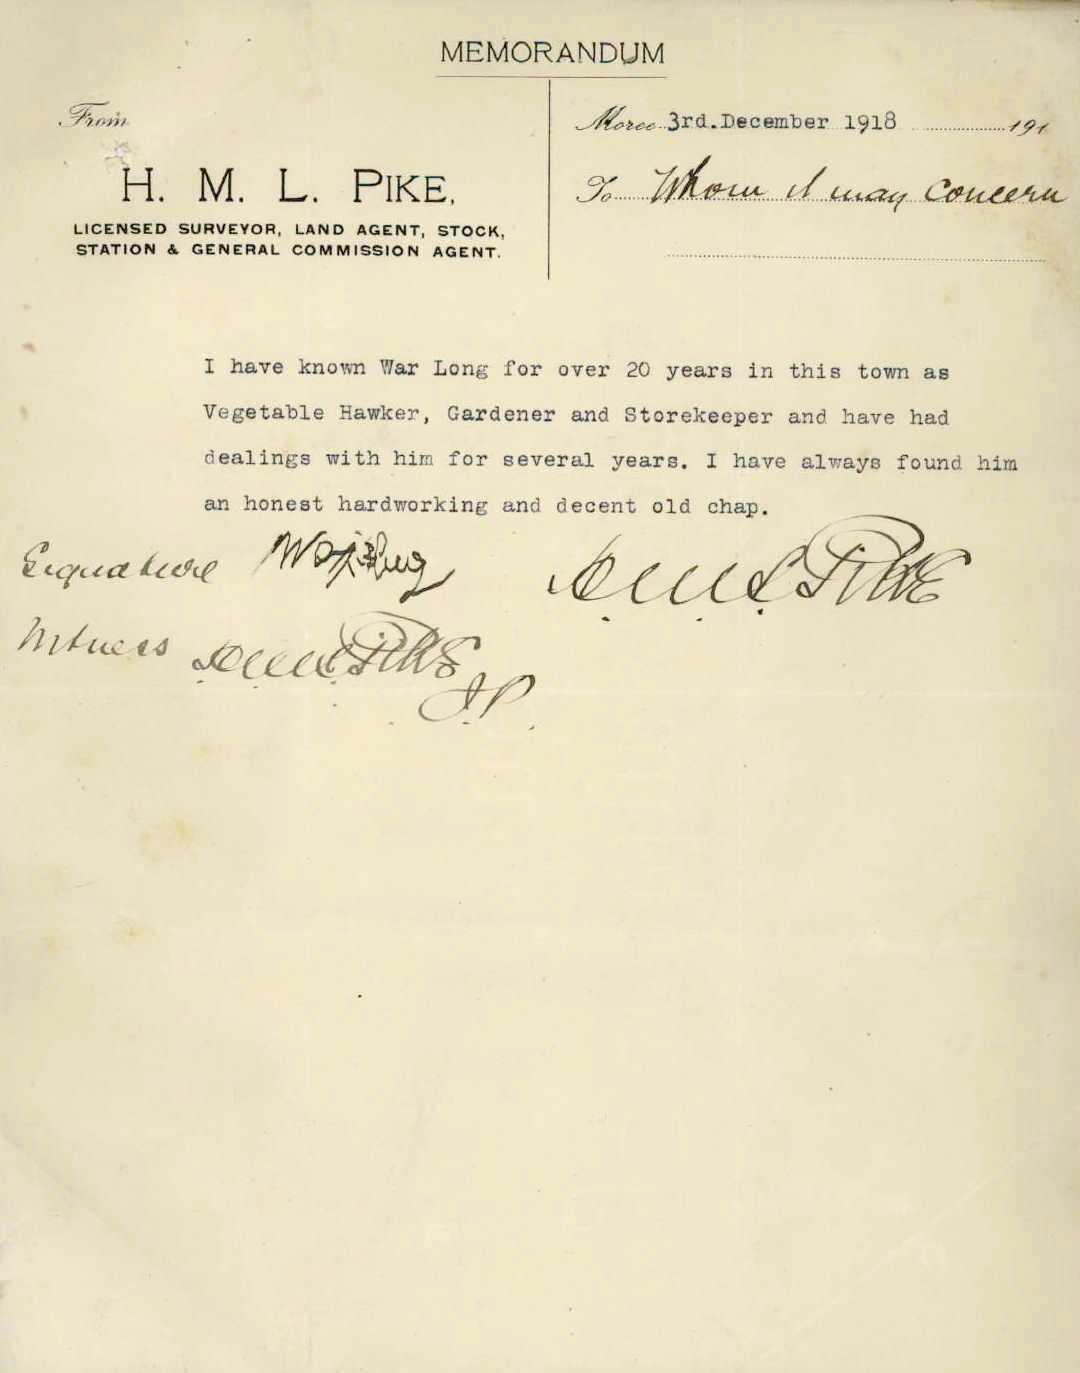 MEMORANDUM
From
H. M. L. PIKE,
LICENSED SURVEYOR, LAND AGENT, STOCK,
STATION & GENERAL COMMISSION AGENT.
Moree 3rd.December 1918 191
To Whom it may concern
I have known War Long for over 20 years in this town as
Vegetable Hawker, Gardener and Storekeeper and have had
dealings with him for several years. I have always found him
an honest hardworking and decent old chap.
H.M.L. PIKE
Signature
Witness H.M.L. PIKE
J.P.